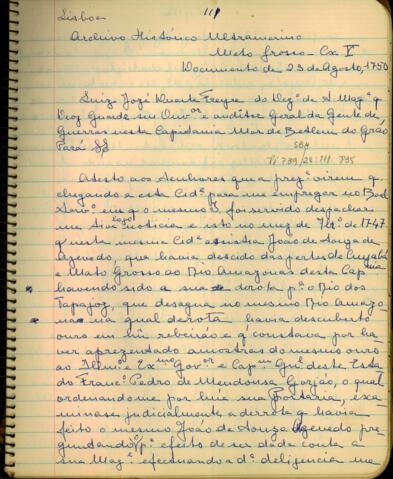 Lisboa
111
Archivo Histórico Ultramarino
Mato Grosso - Cx V
Documento de 23 de Agosto, 1750
Luiz José Duarte Freyre do Dezº de S. Magᵉ q
Deoz Guarde seu Ouvᵒʳ e auditor Geral da Gente de
Guerras nesta Capitania Mor de Bethlem do Grão
Pará
Atesto aos senhores que a prezᵉ virem q
chegando a esta Cidᵉ para me empregar no
em q o mesmo Sʳ foi servido despachar
me tive logo noticia e isto no mez de 7bʳᵒ de 1747
q nesta mesma Cidᵉ existia João de Souza de
Azevedo, que havia descido das partes de Cuyabá
e Mato Grosso ao Rio Amazonas desta Capⁿⁱᵃ
havendo sido a sua derota pᵃ o Rio dos
Tapajoz, que desagua no mesmo Rio Amazo-
na na qual derota havia descuberto
ouro em hũ rebeirão e q constava por ha-
ver aprezentado amostras do mesmo ouro
ao Illmº e Exmº Govᵒʳ e Capᵐ Gnˡ deste Esta
do Francᵒ Pedro de Mendonsa Gorjão, o qual
ordenandome por húa sua Portaria, exa
minase judicialmente a derota q havia
feito o mesmo João de Souza Azevedo pre
guntandoo pᵃ efeito de ser dada conta a
sua Magᵉ. efectuando a dᵃ deligencia na